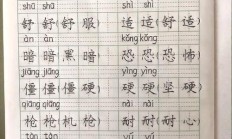 shū shū shì shì
舒舒(舒服) 适适(舒适)
àn àn kǒng kǒng
暗暗(黑暗) 恐恐(恐怖)
jiāng jiāng yìng yìng
僵僵(僵硬) 硬硬(坚硬)
qiāng qiāng nài nài
枪枪(机枪) 耐耐(耐心)